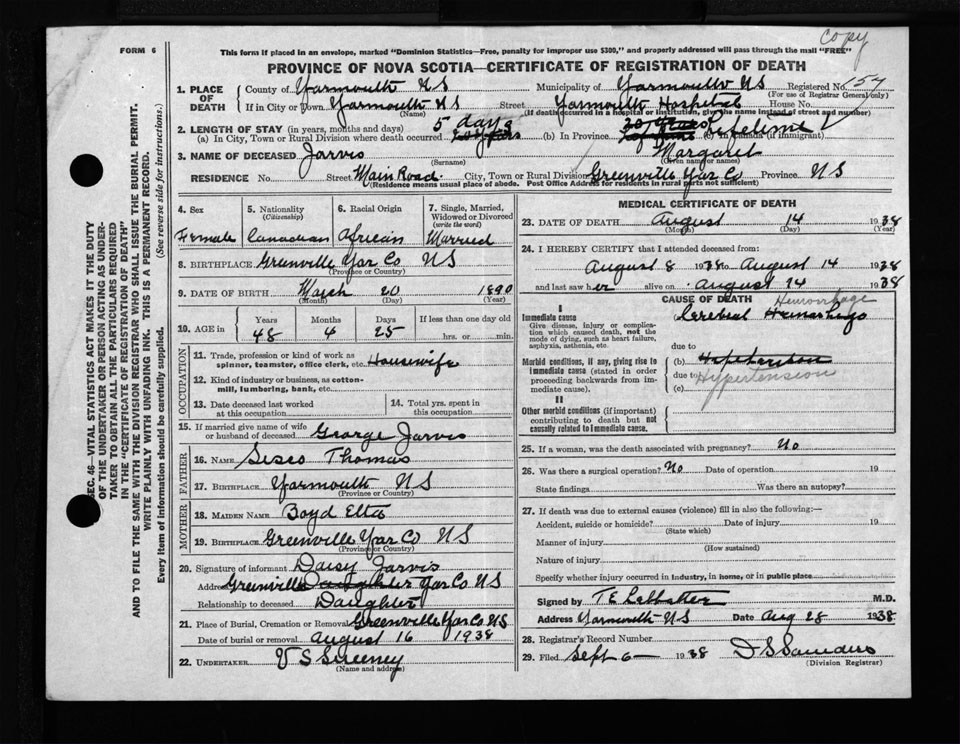 copy
FORM 6
This form if placed in an envelope, marked "Dominion Statistics—Free, penalty for improper use $300," and properly addressed will pass through the mail "FREE"
PROVINCE OF NOVA SCOTIA—CERTIFICATE OF REGISTRATION OF DEATH
1. PLACE OF DEATH County of Yarmouth NS Municipality of Yarmouth NS Registered No. 157
(For use of Registrar General only)
If in City or Town Yarmouth NS Street Yarmouth Hospital House No.
(Name) (If death occurred in a hospital or institution, give the name instead of street and number)
2. LENGTH OF STAY (in years, months and days)
(a) In City, Town or Rural Division where death occurred 5 days (b) In Province (c) Canada (if immigrant)
3. NAME OF DECEASED Jarvis Margaret
(Surname) (Given name or names)
RESIDENCE No. Street Main Road. City, Town or Rural Division Greenville Yar Co Province NS
(Residence means usual place of abode. Post Office Address for residents in rural parts not sufficient)
4. Sex Female
5. Nationality (Citizenship) Canadian
6. Racial Origin African
7. Single, Married, Widowed or Divorced (write the word) Married
8. BIRTHPLACE Greenville Yar Co NS
(Province or Country)
9. DATE OF BIRTH March 20 1890
(Month) (Day) (Year)
10. AGE in Years 48 Months 4 Days 25 If less than one day old hrs. or min.
OCCUPATION
11. Trade, profession or kind of work as spinner, teamster, office clerk, etc. Housewife
12. Kind of industry or business, as cotton-mill, lumbering, bank, etc.
13. Date deceased last worked at this occupation
14. Total yrs. spent in this occupation
15. If married give name of wife or husband of deceased George Jarvis
FATHER
16. Name Sisco Thomas
17. Birthplace Yarmouth NS
(Province or Country)
MOTHER
18. Maiden Name Boyd Etta
19. Birthplace Greenville Yar Co NS
(Province or Country)
20. Signature of informant Daisy Jarvis
Address Greenville Daughter Yar Co NS
Relationship to deceased Daughter
21. Place of Burial, Cremation or Removal Greenville Yar Co NS
Date of burial or removal August 16 1938
22. UNDERTAKER V S Sweeney
(Name and address)
MEDICAL CERTIFICATE OF DEATH
23. DATE OF DEATH August 14 1938
(Month) (Day) (Year)
24. I HEREBY CERTIFY that I attended deceased from:
August 8 1938 to August 14 1938
and last saw her alive on August 14 1938
CAUSE OF DEATH Hemorrhage
Immediate cause Cerebral
Give disease, injury or complication which caused death, not the mode of dying, such as heart failure, asphyxia, asthenia, etc.
due to
Morbid conditions, if any, giving rise to immediate cause (stated in order proceeding backwards from immediate cause).
(b)
due to Hypertension
(c)
II
Other morbid conditions (if important) contributing to death but not causally related to immediate cause.
25. If a woman, was the death associated with pregnancy? No
26. Was there a surgical operation? No Date of operation 19
State findings Was there an autopsy?
27. If death was due to external causes (violence) fill in also the following:—
Accident, suicide or homicide? Date of injury 19
(State which)
Manner of injury
(How sustained)
Nature of injury
Specify whether injury occurred in industry, in home, or in public place
Signed by M.D.
Address Yarmouth NS Date Aug 28 1938
28. Registrar's Record Number
29. Filed Sept 6 1938 D S Saunders
(Division Registrar)
SEC. 46—VITAL STATISTICS ACT MAKES IT THE DUTY
OF THE UNDERTAKER OR PERSON ACTING AS UNDERTAKER
TO OBTAIN ALL THE PARTICULARS REQUIRED
IN THE "CERTIFICATE OF REGISTRATION OF DEATH"
AND TO FILE THE SAME WITH THE DIVISION REGISTRAR WHO SHALL ISSUE THE BURIAL PERMIT.
WRITE PLAINLY WITH UNFADING INK. THIS IS A PERMANENT RECORD.
Every item of information should be carefully supplied. (See reverse side for instructions.)